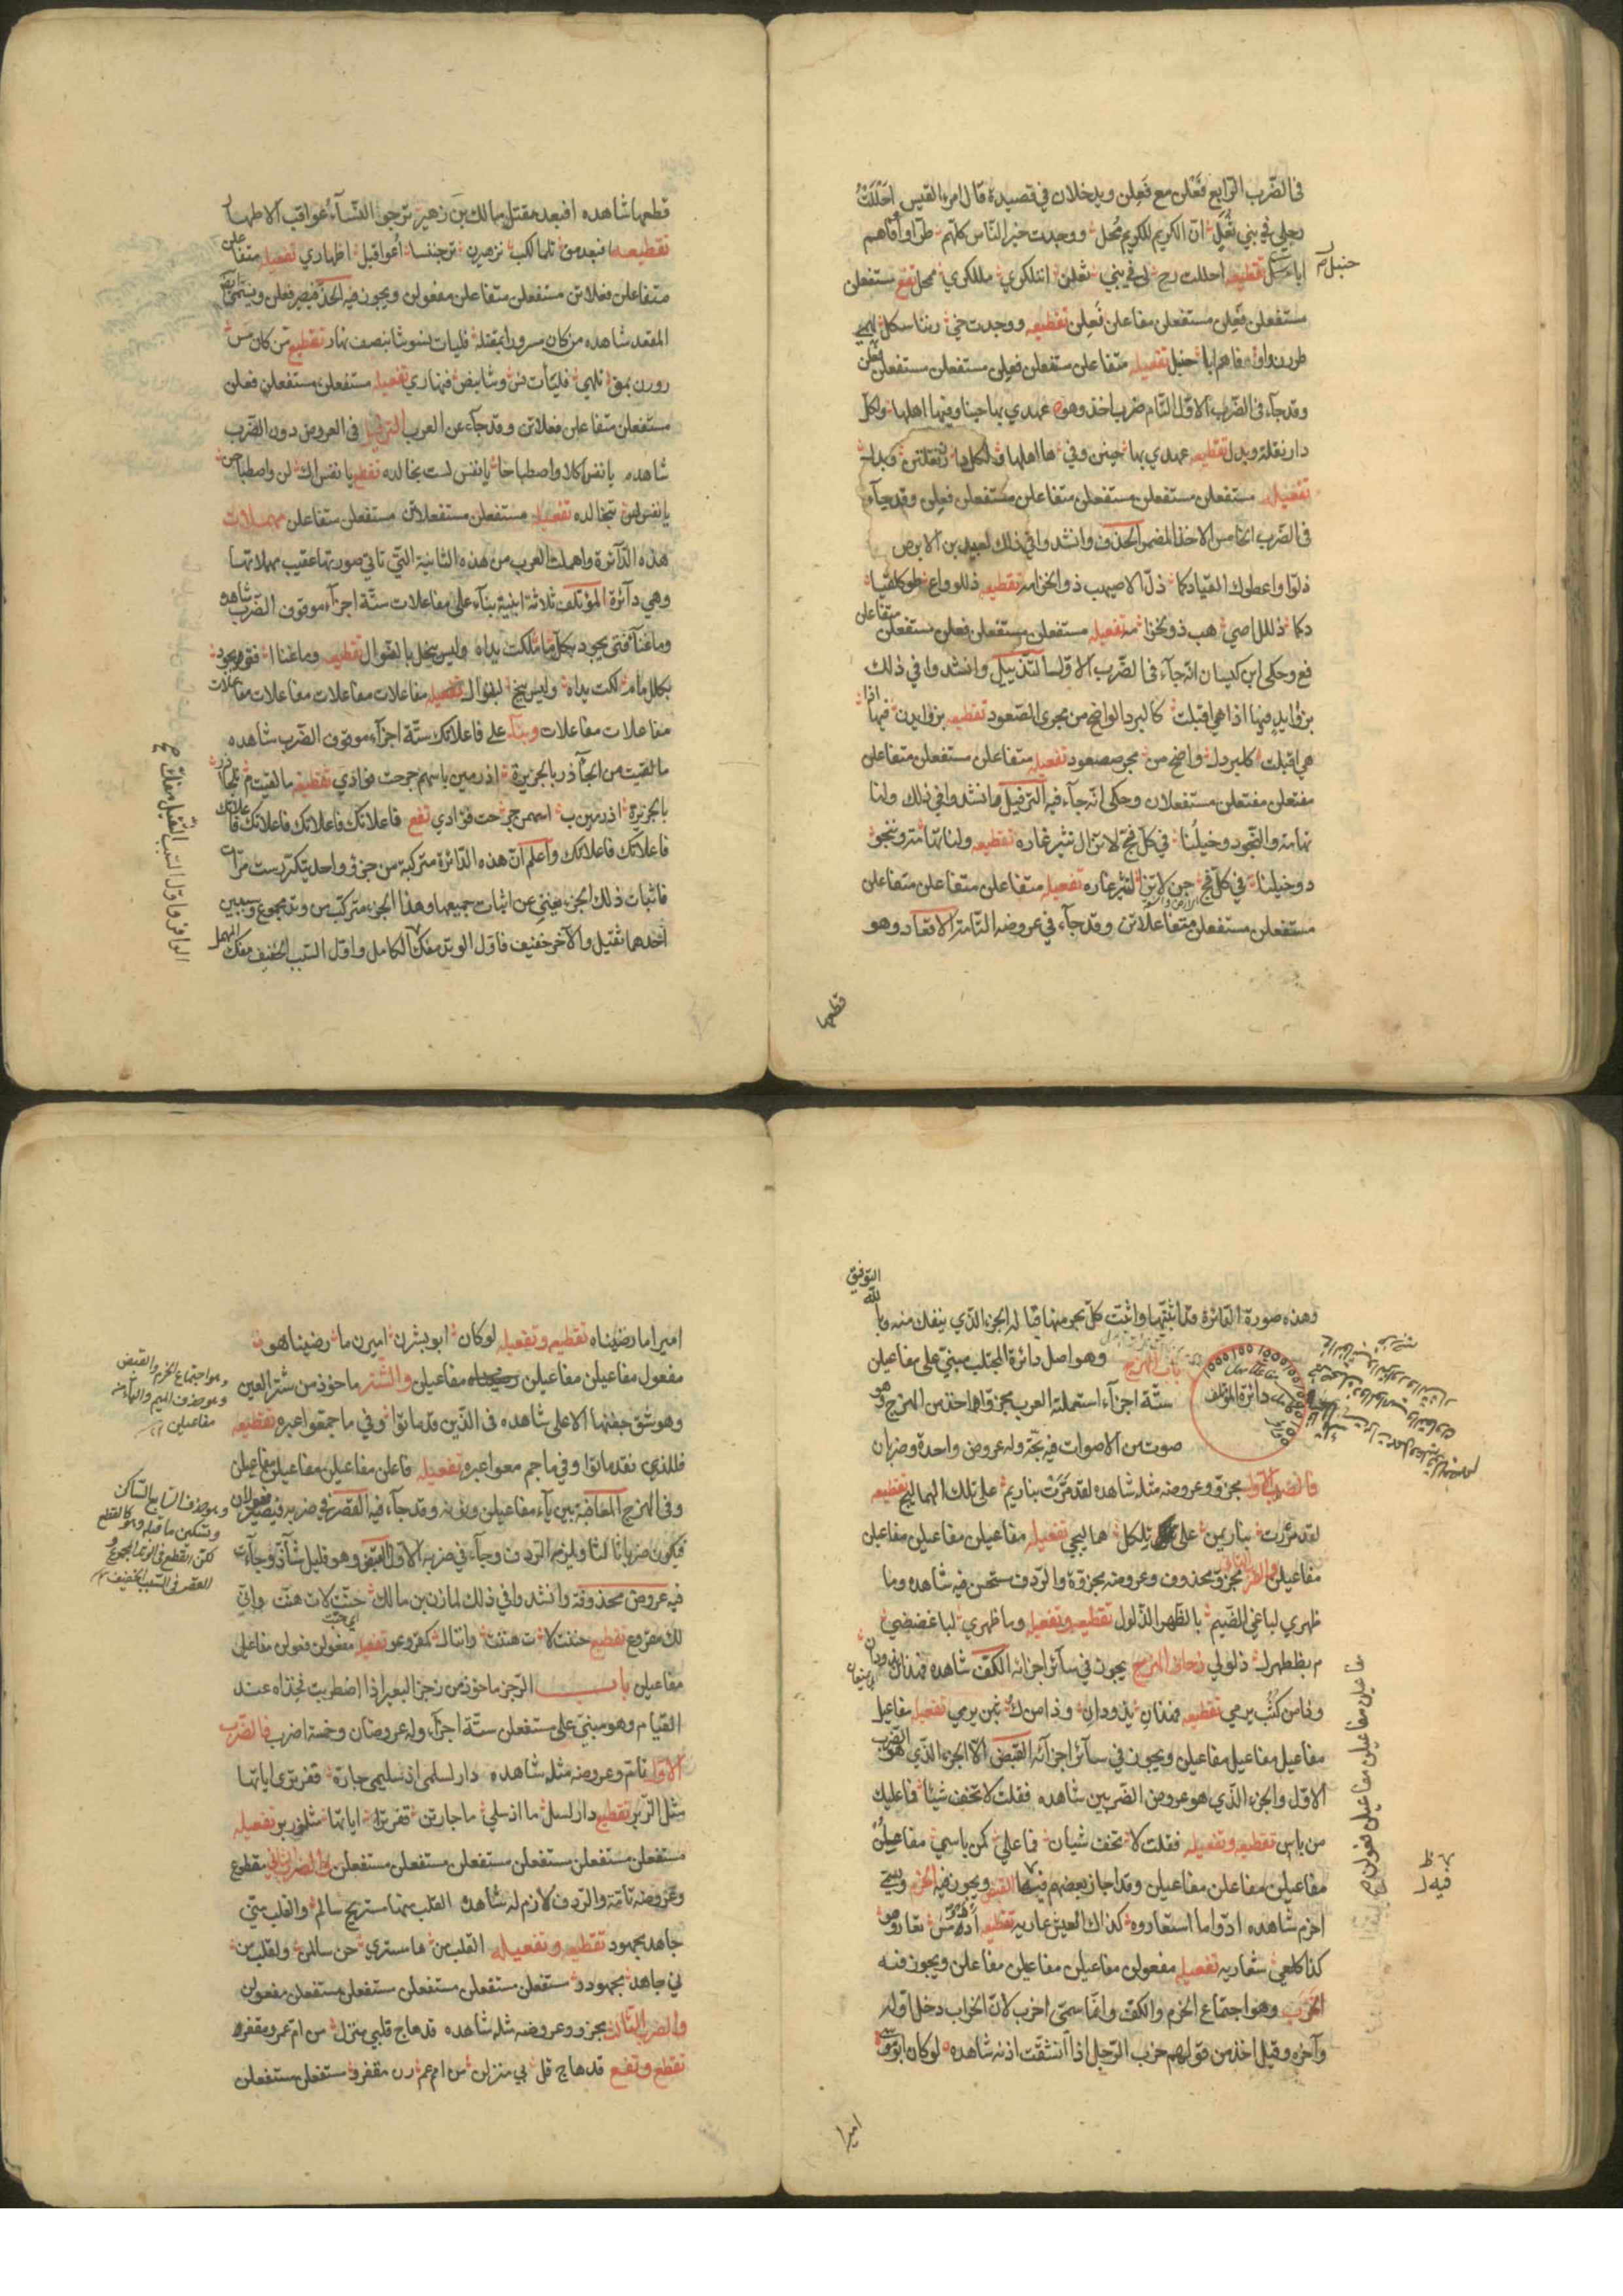 فى الضّرب الرّابع فَعْلن مع فَعِلن ويدخلان فى قصيدة قال امرء القيس احْلَلْتُ
رحلى فى بنى ثُعَلٍ انّ الكريم للكريم مُحل ووجدت خير النّاس كلّهم طرّا واوفاهم
حنبل
ابا تقطيعه احللت رح لى فى بنى ثعلن اننلكرى مللكرى محل تفع مستفعلن
مستفعلن فَعِلن مستفعلن مفاعلن فَعِلن تقطيعه ووجدت خى رننا سكل لهمى
طررن واو فاهم ابا حنبل تفعيله متفاعلن مستفعلن فعلن مستفعلن مستفعلن فعلن
وقد جآء فى الضّرب الاوّل التّام ضرب احذ وهو عهدي بها حينا وفيها اهلها ولكلّ
دار نقلة وبدل تقطيعه عهدي بها حينن وفى ها اهلها ولكل دا رن نقلتن وبدل
تفعيله مستفعلن مستفعلن مستفعلن متفاعلن مستفعلن فعلن وقد جآء
فى الضّرب الخامس الاحذ المضمر الحذف وانشدوا فى ذلك لعبيد بن الابرص
ذلّوا واعطوك القيادكما ذلّ الاصيهب ذو الخزامه تقطيعه ذللو واع طوكلقيا
دكما ذللل اصى هب ذو لخزا مه تفعيله مستفعلن مستفعلن فعلن مستفعلن متفاعلن
فع وحكى ابن كيسان انّه جآء فى الضّرب الاوّل التّذييل وانشدوا فى ذلك
فيها اذا هى اقبلت كالبرد الواضح من مجرى الصّعود تقطيعه فيها اذا
هى اقبلت كلبردل واضح من مجرصصعود تفعيله متفاعلن مستفعلن متفاعلن
مفتعلن مفتعلن مستفعلان وحكى انّه جآء فيه التّرفيل وانشدوا فى ذلك ولنا
تهامة والنّجود وخيلُنا فى كلّ فجّ لا تزال تثير غاره تقطيعه ولنا تها مة وننجو
د وخيلنا فى كلّ فج جن لا تزا لتثير غاره تفعيله متفاعلن متفاعلن متفاعلن
مستفعلن مستفعلن متفاعلاتن وقد جآء فى عروضه التّامّة الاقعاد وهو
قطعها
قطعها شاهده افبعد مقتل مالك بن زهير ترجو النّسآء عواقب الاطهار
تقطيعه افبعد مق تلمالك بن زهيرن ترجننسا أعواقبل اطهاري تفعيله متفاعلن
متفاعلن فعلاتن مستفعلن متفاعلن مفعولن ويجوز فيه الحذّ فيصير فعلن ويسمّى
المقعد شاهده من كان مسرورا بمقتله فليات نسوتنا بنصف نهار تقطيع من كان مس
رورن بمق تلهى فليأت نس وتنا بنص فنهاري تفعيله مستفعلن مستفعلن فعلن
مستفعلن متفاعلن فعلاتن وقد جآء عن العرب التّرفيل فى العروض دون الضّرب
شاهده يا نفس اكلا واصطباحا يا نفس لست بخالده تقطيع يا نفس اك لن واصطباحن
يا نفس لس تبخالده تفعيله مستفعلن مستفعلاتن مستفعلن متفاعلن مهملات
هذه الدّآئرة واهملت العرب من هذه الثانية التى تاتى صورتها عقيب مهملاتها
وهى دآئرة المؤتلف ثلاثة ابنية بنآء على مفاعلات ستّة اجزآء موقوف الضّرب شاهده
وما غنآ فتى يجود بكلّ ما ملكت يداه وليس يبخل بالنّوال تقطيعه وما غناا فتى يجود
بكلل ما ملكت يداه وليس يبخ لبننوال تفعيله مفاعلات مفاعلات مفاعلات مفاعلات
مفاعلات مفاعلات وبنآء على فاعلاتك ستّة اجزآء موقوف الضّرب شاهده
ما لقيت من الجآذر بالجزيرة اذ رمين باسهم جرحت فؤادي تقطيعه ما لقيت م نلجآذر
بالجزيرة اذ رمين ب اسهمن جرحت فؤادي تفع فاعلاتك فاعلاتك فاعلاتك فاعلاتك
فاعلاتك فاعلاتك واعلم انّ هذه الدّائرة متركبة من جزؤ واحد يتكرّر ست مرّات
فاثبات ذلك الجزء يغنى عن اثبات جميعها وهذا الجزء متركّب من وتد مجموع وسببين
احدهما ثقيل والآخر خفيف فاوّل الوتد مفكّ الكامل واوّل السّبب الخفيف مفكّ المهمل
الوافر واوّل السّبب الثّقيل مفكّ صح
وهذه صورة الدّائرة قد اثبتّها واثبتّ كلّ بحر منها قبالة الجزء الذّي ينفك منه وبالله التّوفيق
باب الهزج وهو اصل دائرة المجتلب مبنىّ على مفاعيلن
دائرة المؤتلف
ستّة اجزآء استعملته العرب مجزوّا اخذ من الهزج وهو
صوت من الاصوات فيه بحّة وله عروض واحدة وضربان
فالضرب الاوّل مجزوّ وعروضه مثله شاهده لقد مَرَّتْ بنا ريم على تلك الهماليج تقطيعه
لقد مررت بنا ريمن على تلكل هماليجى تفعيله مفاعيلن مفاعيلن مفاعيلن
مفاعيلن والضرب الثانى مجزوّ محذوف وعروضه مجزوّة والرّدف مستحسن فيه شاهده وما
ظهري لباغى الضّيم بالظّهر الذّلول تقطيعه وتفعيله وما ظهري لباغضضى
م بظظهرل ذلولى زحاف الهزج يجوز فى سآئر اجزائه الكفّ شاهده فهذان يذودان
وذا من كثب يرمى تقطيعه فهذان يذودان وذا من ك ثبن يرمى تفعيله مفاعيل
مفاعيل مفاعيل مفاعيلن ويجوز فى سآئر اجزآئه القبض الّا الجزء الذّي هو الضّرب
الاوّل والجزء الذّي هو عروض الضّربين شاهده فقلت لا تخف شيئا فما عليك
من باس تقطيعه وتفعيله فقلت لا تخف شيان فما علي كمن باسى مفاعلن
مفاعيلن مفاعلن مفاعيلن وقد اجاز بعضهم فيها القبض ويجوز فيه الخرم ويسمّى
اخرم شاهده ادّوا ما استعاروه كذاك العيش عاريه تقطيعه اددو مس تعاروهو
كذا كلعى شعاريه تفعيله مفعولن مفاعيلن مفاعيلن مفاعلن ويجوز فيه
الخَرَب وهو اجتماع الخرم والكفّ وانّما سمّى اخرب لانّ الخراب دخل اوّله
وآخره وقيل اخذ من قولهم خرب الرّجل اذا انشقّت اذنه شاهده لو كان ابو بشر
اميرا
اميرا ما رضيناه تقطيعه وتفعيله لو كان ابو بشرن اميرن ما رضيناهو
مفعول مفاعيلن مفاعيلن مفاعيلن والشّتر ماخوذ من شتر العين
وهو شقّ جفنها الاعلى شاهده فى الذّين قد ماتوا وفى ما جمّعوا عبره تقطيعه
فللذى نقد ماتوا وفى ما جم معوا عبره تفعيله فاعلن مفاعيلن مفاعيلن مفاعيلن
وفى الهزج المعاقبة بين يآء مفاعيلن ونونه وقد جآء فيه القصر فى ضربه فيصير فعولان
فيكون ضربا ثالثا ويلزم الرّدف وجآء فى ضربه الاوّل القبض وهو قليل شآذّ وجآءت
فيه عروض محذوفة وانشدوا فى ذلك لمازن بن مالك حنّت لات هنّت وانّى
لك مقروع تقطيع حننت لا ت هننت واننال كمقروعو تفعيل مفعولن فعولن مفاعيل
مفاعيلن باب الرّجز ماخوذ من رجز البعير اذا اضطربت فخذاه عند
القيام وهو مبنىّ على مستفعلن ستّة اجزآء وله عروضان وخمسة اضرب فالضّرب
الاوّل تامّ وعروضه مثله شاهده دار لسلمى اذ سليمى جارة قفر ترى اياتها
مثل الزّبر تقطيع دار لسل ما اذ سلى ما جارتن قفرن ترا اياتها مثلززبر تفعيله
مستفعلن مستفعلن مستفعلن مستفعلن مستفعلن مستفعلن والضرب الثانى مقطوع
وعروضه تآمّة والرّدف لازم له شاهده القلب منها مستريح سالم والقلب منّى
جاهد مجهود تقطيعه وتفعيله القلب من ها مستري حن سالمن ولقلب من
نى جاهدن مجهودو مستفعلن مستفعلن مستفعلن مستفعلن مستفعلن مفعولن
والضرب الثالث مجزوو وعروضه مثله شاهده قد هاج قلبى منزل من امّ عمرو مقفر
تقطع وتفع قد هاج قل بى منزلن من امم عم رن مقفرو مستفعلن مستفعلن
وهو اجتماع الخرم والقبض
وهو حذف الميم والياء من
مفاعيلن
وهو حذف السّابع السّاكن
وتسكين ما قبله وهو كالقطع
لكن القطع فى الوتد المجموع و
القصر فى السّبب الخفيف